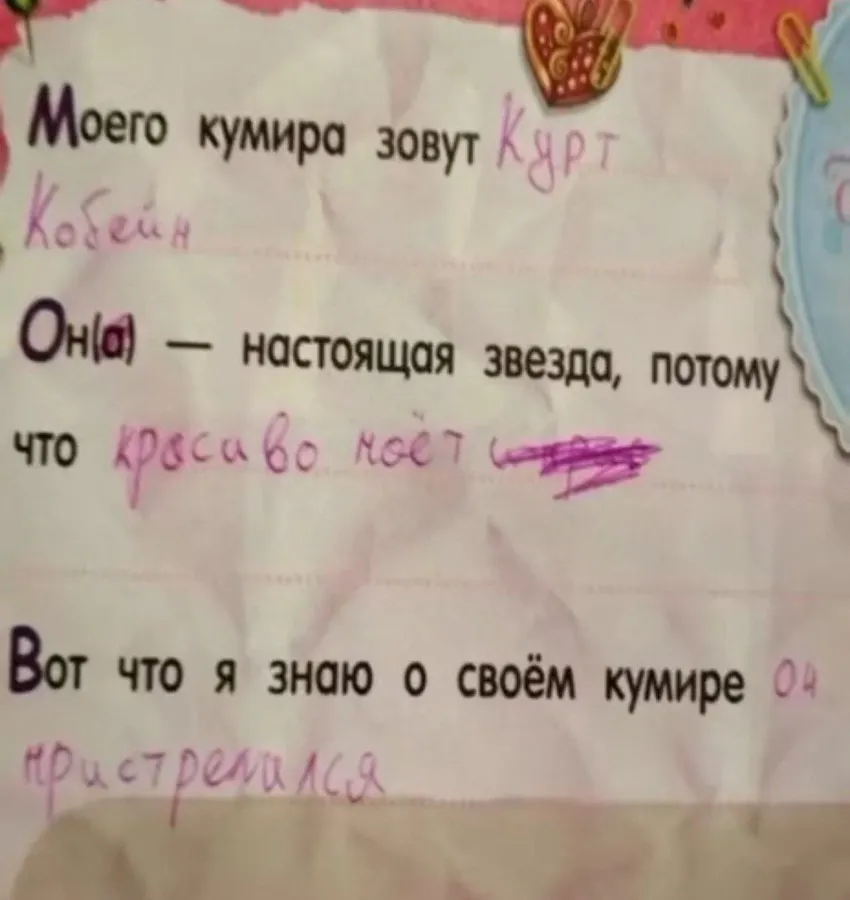 Моего кумира зовут Курт
Кобейн
Он(а) — настоящая звезда, потому
что красиво поёт и
Вот что я знаю о своём кумире он
пристрелился